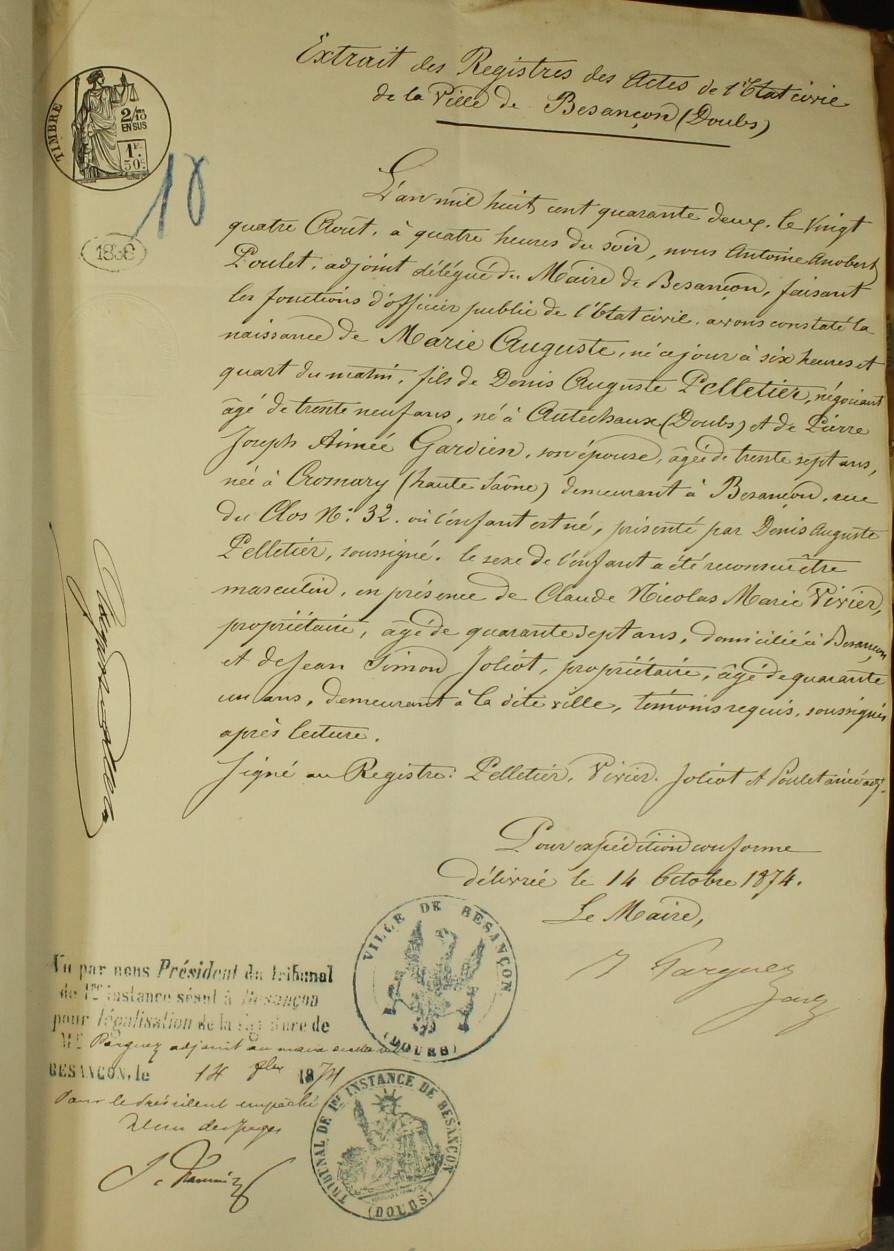 Extrait des Registres des Actes de l'Etat civil
de la Ville de Besançon (Doubs)
TIMBRE
2/10
EN SUS
1F
50c
18
L'an mil huit cent quarante deux, le vingt
quatre Août, à quatre heures du soir, nous Antoine
Poulet, adjoint délégué du Maire de Besançon, faisant
les fonctions d'officier public de l'Etat civil, avons constaté la
naissance de Marie Auguste, né ce jour à six heures et
quart du matin, fils de Denis Auguste Pelletier, négociant
âgé de trente neuf ans, né à Autechaux (Doubs) et de Pierre
Joseph Aimée Gardien, son épouse, âgée de trente sept ans,
née à Cromary (haute Saône) demeurant à Besançon, rue
du Clos No. 32. où l'enfant est né, présenté par Denis Auguste
Pelletier, soussigné. le sexe de l'enfant a été reconnu être
masculin, en présence de Claude Nicolas Marie Vivier,
propriétaire, âgé de quarante sept ans, domicilié à Besançon
et de Jean Simon Joliot, propriétaire, âgé de quarante
un ans, demeurant à la dite ville, témoins requis, soussignés
après lecture.
Signé au Registre: Pelletier, Vivier, Joliot et Poulet ainé adjt.
Pour expédition conforme
délivrée le 14 Octobre 1874.
Le Maire,
VILLE DE BESANÇON
(DOUBS)
Vu par nous Président du tribunal
de 1re instance séant à Besançon
pour légalisation de la signature de
Mr Parguez adjoint au maire
BESANÇON, le 14 8bre 1874
Pour le Président empêché
l'un des Juges
TRIBUNAL DE 1re INSTANCE DE BESANÇON
(DOUBS)